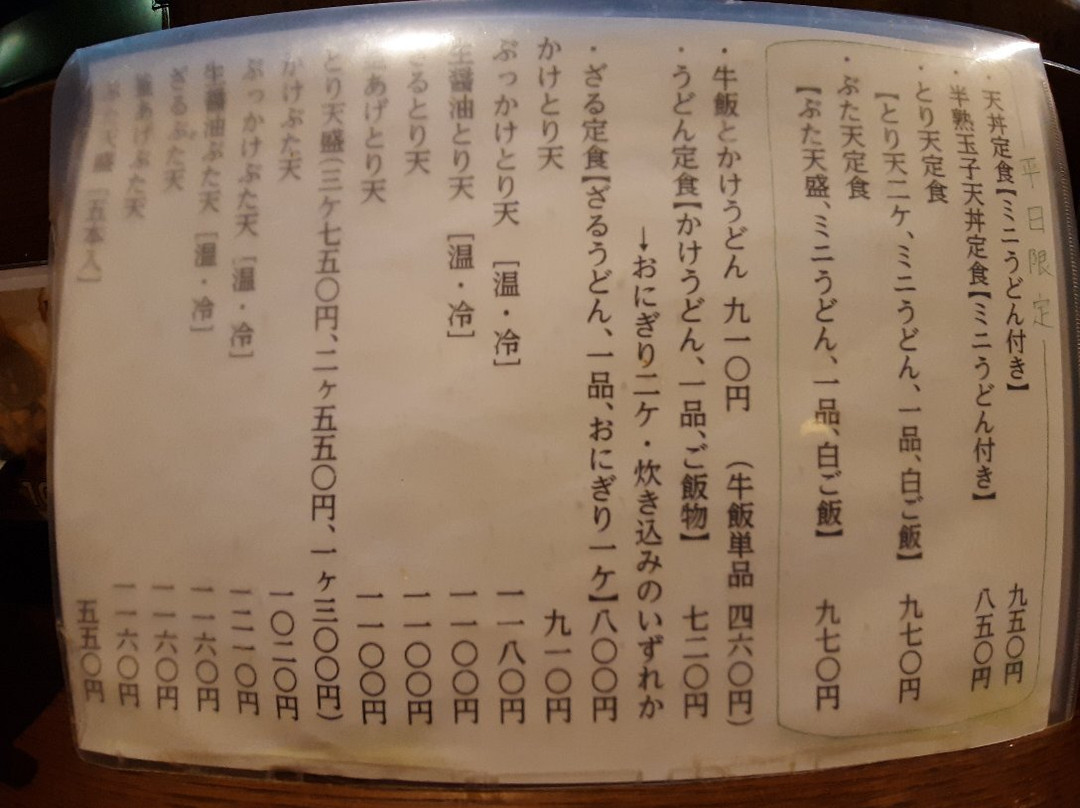 平日限定
・天丼定食【ミニうどん付き】 九五〇円
・半熟玉子天丼定食【ミニうどん付き】 八五〇円
・とり天定食
【とり天二ケ、ミニうどん、一品、白ご飯】 九七〇円
・ぶた天定食
【ぶた天盛、ミニうどん、一品、白ご飯】 九七〇円
・牛飯とかけうどん 九一〇円 (牛飯単品 四六〇円)
・うどん定食【かけうどん、一品、ご飯物】 七二〇円
→おにぎり二ケ・炊き込みのいずれか
・ざる定食【ざるうどん、一品、おにぎり一ケ】八〇〇円
かけとり天 九一〇円
ぶっかけとり天 [温・冷] 一一八〇円
生醤油とり天 [温・冷] 一一〇〇円
ざるとり天 一一〇〇円
あげとり天 一一〇〇円
とり天盛(三ケ七五〇円、二ヶ五五〇円、一ヶ三〇〇円)
かけぶた天 一〇二〇円
ぶっかけぶた天 [温・冷] 一二一〇円
生醤油ぶた天 [温・冷] 一一六〇円
ざるぶた天 一一六〇円
あげぶた天 一一六〇円
天盛 [五本入] 五五〇円